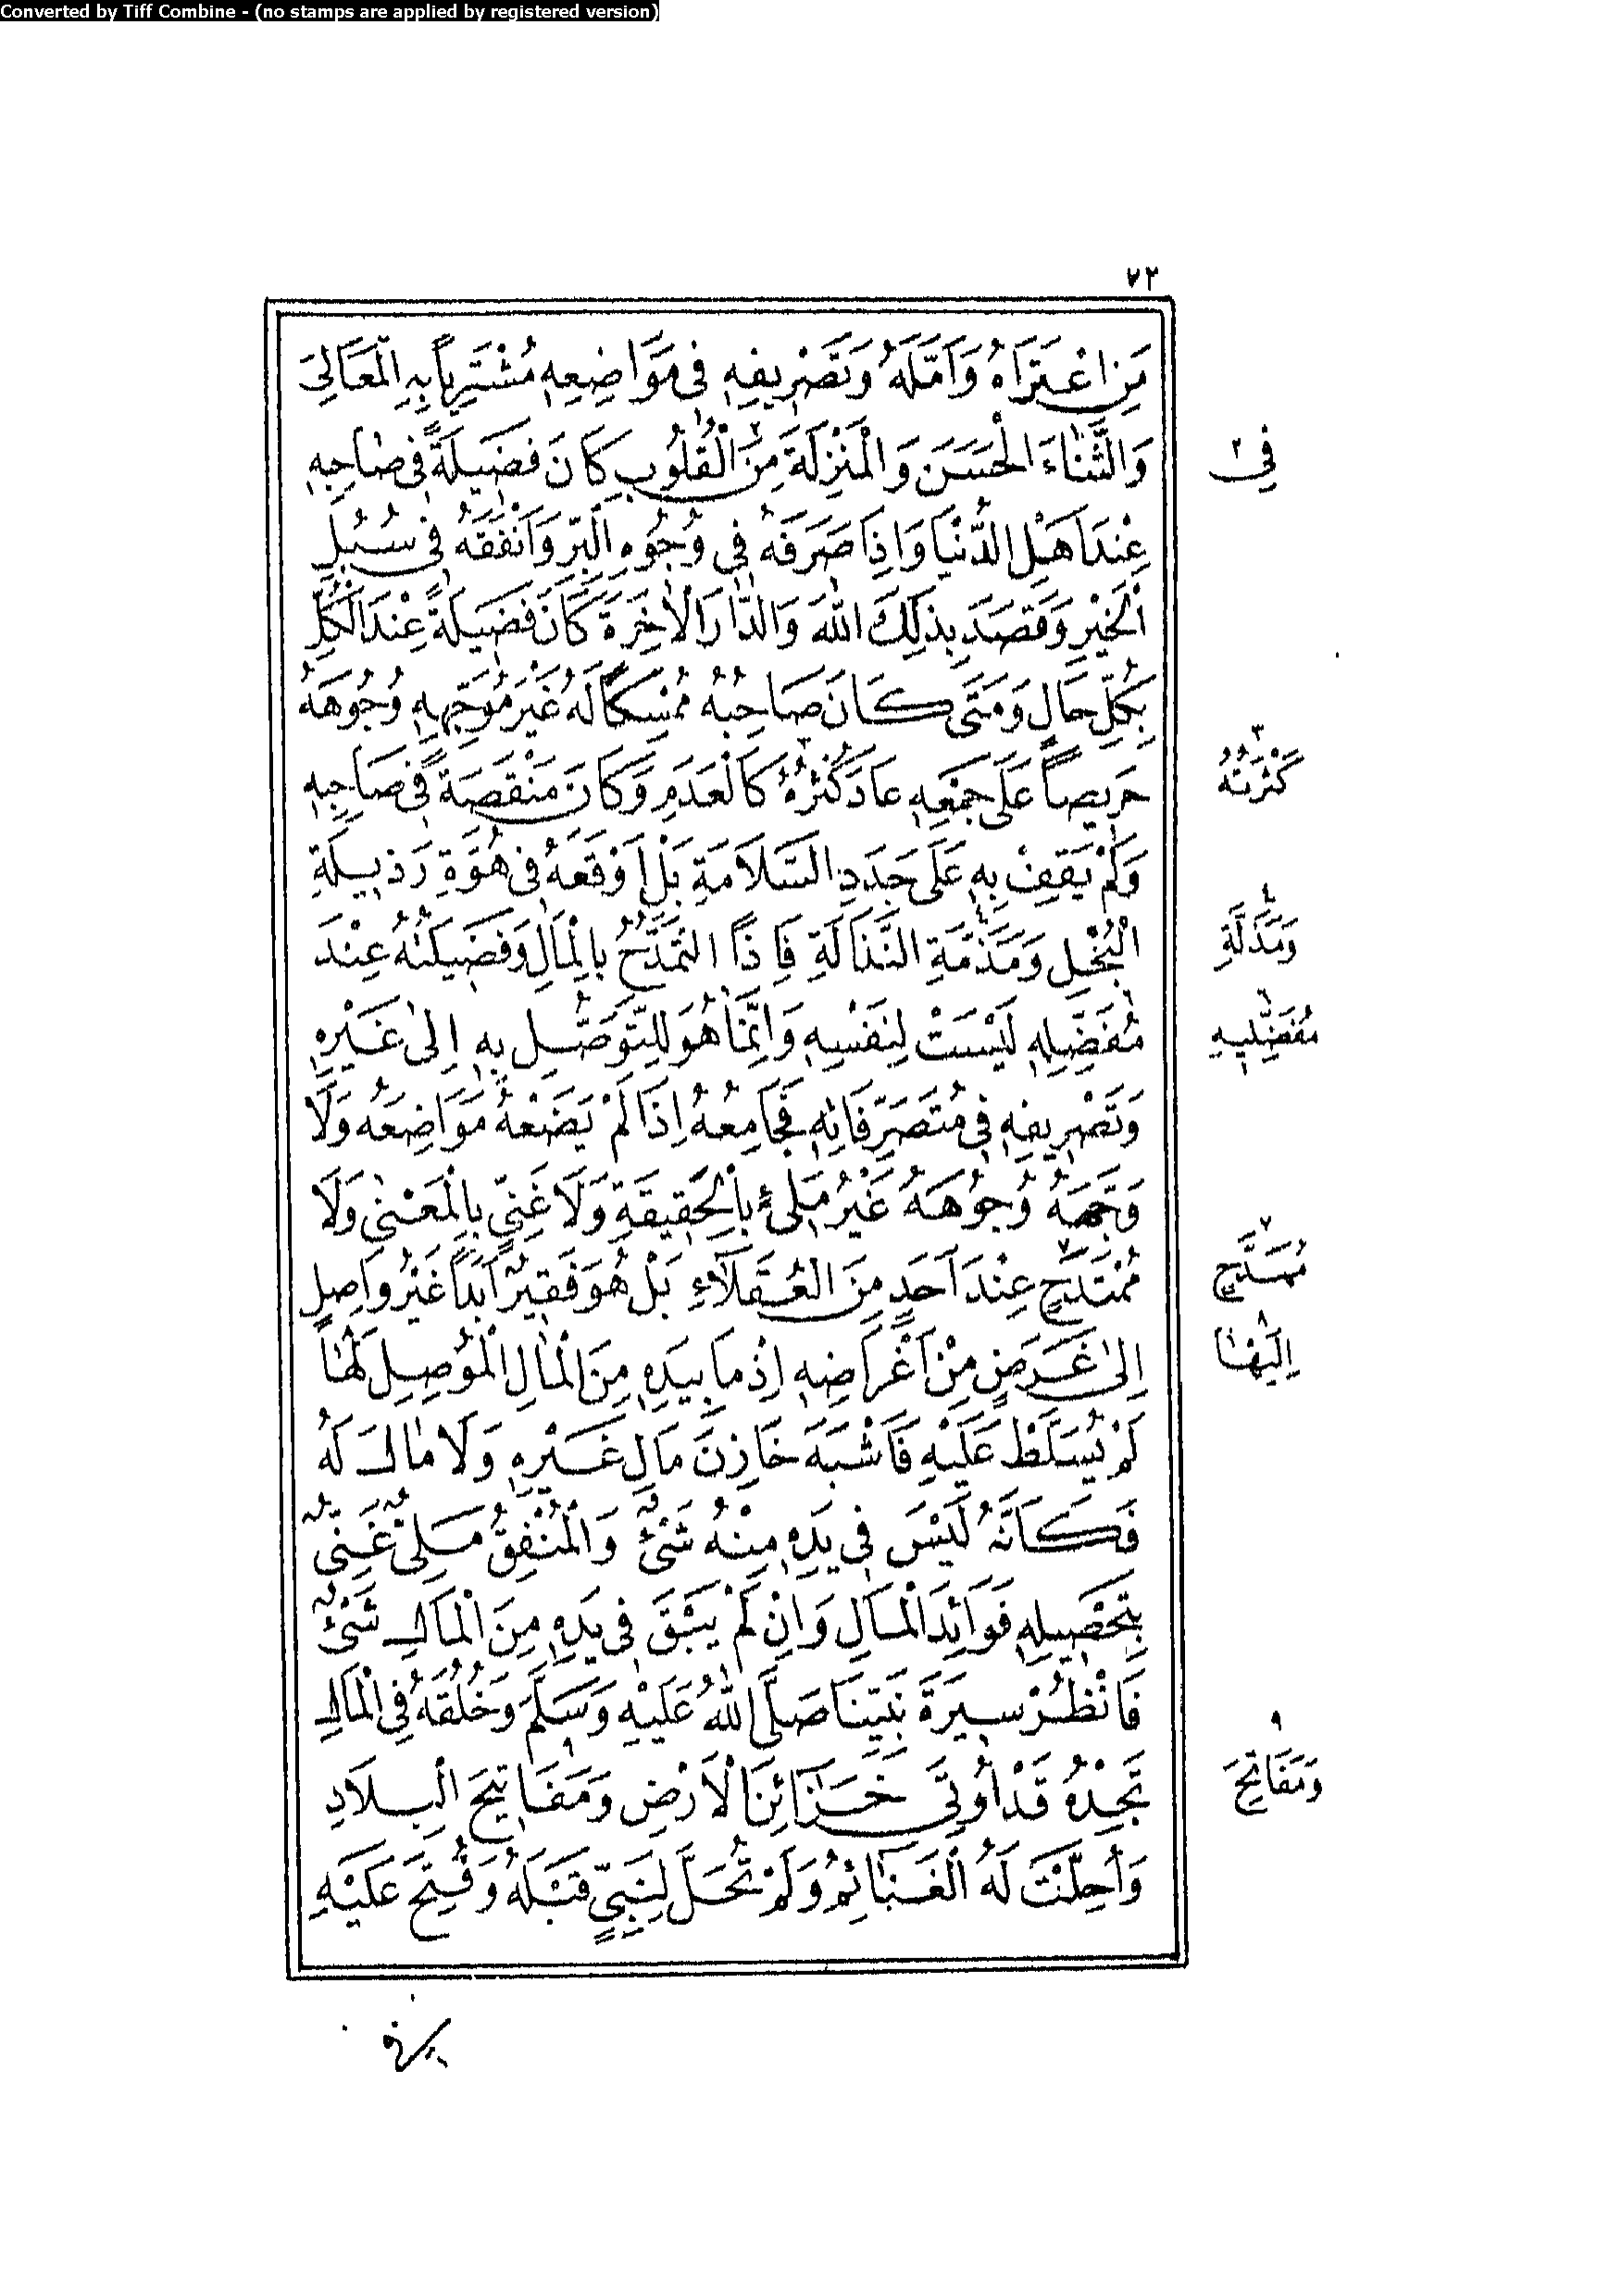 Converted by Tiff Combine - (no stamps are applied by registered version)
٧٢
مَنِ اعْتَرَاهُ وَاَمَّلَهُ وَتَصْرِيفِهِ فِى مَوَاضِعِهِ مُشْتَرِياً بِهِ الْمَعَالِىَ
وَالثَّنَاءَ الْحَسَنَ وَالْمَنْزِلَةَ مِنَ الْقُلُوبِ كَانَ فَضِيلَةً فِى صَاحِبِهِ
عِنْدَ اَهْلِ الدُّنْيَا وَاِذَا صَرَفَهُ فِى وُجُوهِ الْبِرِّ وَاَنْفَقَهُ فِى سُبُلِ
الْخَيْرِ وَقَصَدَ بِذٰلِكَ اللّٰهَ وَالدَّارَ الْاٰخِرَةَ كَانَ فَضِيلَةً عِنْدَ الْكُلِّ
بِكُلِّ حَالٍ وَمَتَى كَانَ صَاحِبُهُ مُمْسِكاً لَهُ غَيْرَ مُوَجِّهِهِ وُجُوهَهُ
حَرِيصاً عَلَى جَمْعِهِ عَادَ كُثْرُهُ كَالْعَدَمِ وَكَانَ مَنْقَصَةً فِى صَاحِبِهِ
وَلَمْ يَقِفْ بِهِ عَلَى جَدَدِ السَّلَامَةِ بَلْ اَوْقَعَهُ فِى هُوَّةِ رَذِيلَةِ
الْبُخْلِ وَمَذَمَّةِ النَّذَالَةِ فَاِذاً التَّمَدُّحُ بِالْمَالِ وَفَضِيلَتُهُ عِنْدَ
مُفَضِّلِهِ لَيْسَتْ لِنَفْسِهِ وَاِنَّمَا هُوَ لِلتَّوَصُّلِ بِهِ اِلىٰ غَيْرِهِ
وَتَصْرِيفِهِ فِى مُتَصَرَّفَاتِهِ فَجَامِعُهُ اِذَا لَمْ يَضَعْهُ مَوَاضِعَهُ وَلَا
وَجَّهَهُ وُجُوهَهُ غَيْرُ مَلِىءٍ بِالْحَقِيقَةِ وَلَا غَنِىٍّ بِالْمَعْنىٰ وَلَا
مُمْتَدَحٍ عِنْدَ اَحَدٍ مِنَ الْعُقَلَاءِ بَلْ هُوَ فَقِيرٌ اَبَداً غَيْرُ وَاصِلٍ
اِلىٰ غَرَضٍ مِنْ اَغْرَاضِهِ اِذْ مَا بِيَدِهِ مِنَ الْمَالِ الْمُوصِلِ لَهَا
لَمْ يُسَلَّطْ عَلَيْهِ فَاَشْبَهَ خَازِنَ مَالِ غَيْرِهِ وَلَا مَالَ لَهُ
فَكَاَنَّهُ لَيْسَ فِى يَدِهِ مِنْهُ شَىْءٌ وَالْمُنْفِقُ مَلِىٌّ غَنِىٌّ
بِتَحْصِيلِهِ فَوَائِدَ الْمَالِ وَاِنْ لَمْ يَبْقَ فِى يَدِهِ مِنَ الْمَالِ شَىْءٌ
فَانْظُرْ سِيرَةَ نَبِيِّنَا صَلَّى اللّٰهُ عَلَيْهِ وَسَلَّمَ وَخُلُقَهُ فِى الْمَالِ
تَجِدْهُ قَدْ اُوتِىَ خَزَائِنَ الْاَرْضِ وَمَفَاتِيحَ الْبِلَادِ
وَاُحِلَّتْ لَهُ الْغَنَائِمُ وَلَمْ تُحَلَّ لِنَبِىٍّ قَبْلَهُ وَفُتِحَ عَلَيْهِ
٢
فِى
٣
كَثْرَتُهُ
٤
وَمَذَلَّةِ
٦
مُفَضِّلِيهِ
٧
مُمَدَّحٍ
٨
اِلَيْهَا
٩
وَمَفَاتِحَ